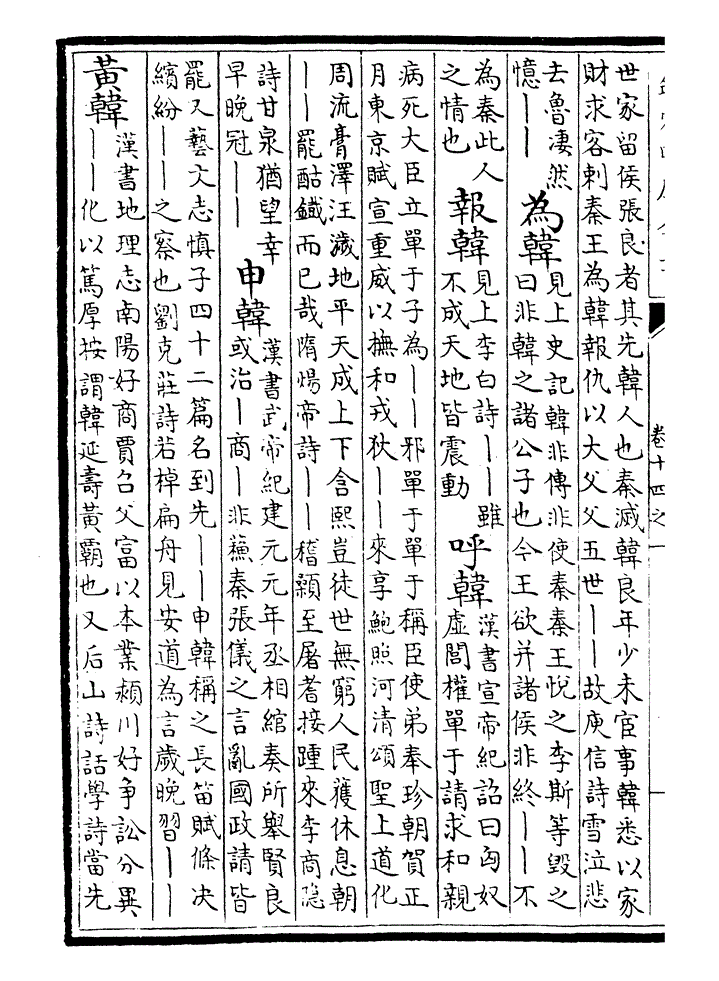 卷十四之一
世家留侯張良者其先韓人也秦滅韓良年少未宦事韓悉以家
財求客刺秦王為韓報仇以大父父五世丨丨故庾信詩雪泣悲
去魯淒然
憶丨丨
為韓
見上史記韓非傳非使秦秦王悦之李斯等毀之
曰非韓之諸公子也今王欲并諸侯非終丨丨不
為秦此人
之情也
報韓
見上李白詩丨丨雖
不成天地皆震動
呼韓
漢書宣帝紀詔曰匈奴
虚閭權單于請求和親
病死大臣立單于子為丨丨邪單于單于稱臣使弟奉珍朝賀正
月東京賦宣重威以撫和戎狄丨丨來享鮑照河清頌聖上道化
周流膏澤汪濊地平天成上下含熙豈徒世無窮人民獲休息朝
丨丨罷酤鐵而已哉隋煬帝詩丨丨稽顙至屠耆接踵來李商隠
詩甘泉猶望幸
早晚冠丨丨
申韓
漢書武帝紀建元元年丞相綰奏所舉賢良
或治丨商丨非蘇秦張儀之言亂國政請皆
罷又藝文志慎子四十二篇名到先丨丨申韓稱之長笛賦條决
繽紛丨丨之察也劉克莊詩若棹扁舟見安道為言歲晚習丨丨
黄韓
漢書地理志南陽好商賈召父富以本業潁川好争訟分異
丨丨化以篤厚按謂韓延壽黄霸也又后山詩話學詩當先